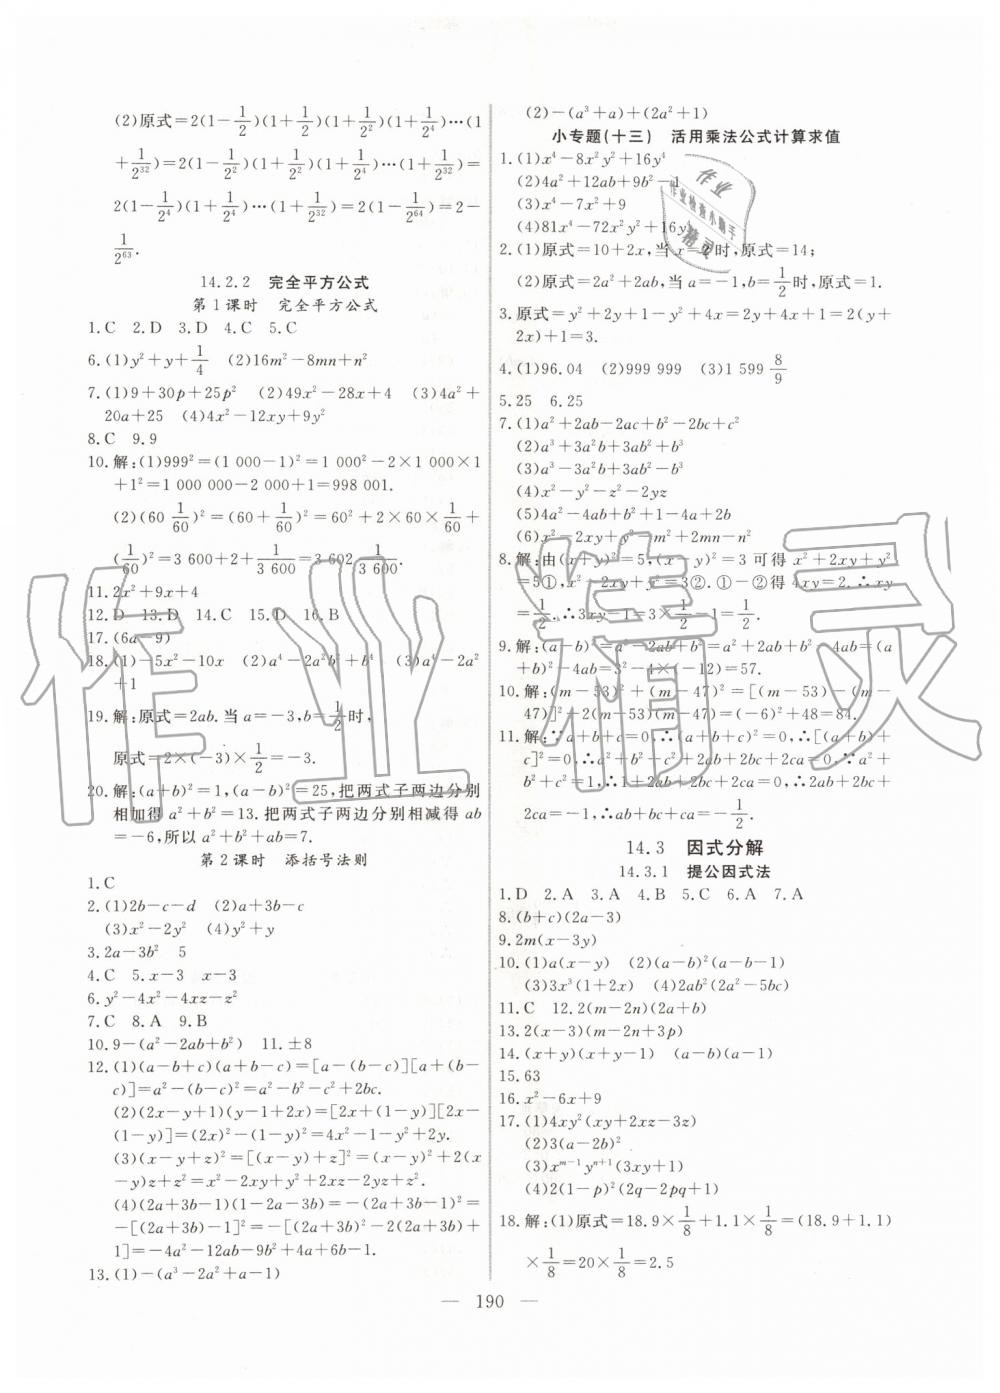 (2)原式=2(1-1/2)(1+1/2)(1+1/2²)(1+1/2⁴)…(1
+1/2³²)=2(1-1/2²)(1+1/2²)(1+1/2⁴)…(1+1/2³²)=
2(1-1/2⁴)(1+1/2⁴)…(1+1/2³²)=2(1-1/2⁶⁴)=2-
1/2⁶³.
14.2.2 完全平方公式
第1课时 完全平方公式
1.C 2.D 3.D 4.C 5.C
6.(1)y²+y+1/4 (2)16m²-8mn+n²
7.(1)9+30p+25p² (2)49x²-28x+4 (3)4a²+
20a+25 (4)4x²-12xy+9y²
8.C 9.9
10.解:(1)999²=(1 000-1)²=1 000²-2×1 000×1
+1²=1 000 000-2 000+1=998 001.
(2)(60 1/60)²=(60+1/60)²=60²+2×60×1/60+
(1/60)²=3 600+2+1/3 600=3 602 1/3 600.
11.2x²+9x+4
12.D 13.D 14.C 15.D 16.B
17.(6a-9)
18.(1)-5x²-10x (2)a⁴-2a²b²+b⁴ (3)a⁴-2a²
+1
19.解:原式=2ab.当a=-3,b=1/2时,
原式=2×(-3)×1/2=-3.
20.解:(a+b)²=1,(a-b)²=25,把两式子两边分别
相加得a²+b²=13.把两式子两边分别相减得ab
=-6,所以a²+b²+ab=7.
第2课时 添括号法则
1.C
2.(1)2b-c-d (2)a+3b-c
(3)x²-2y² (4)y²+y
3.2a-3b² 5
4.C 5.x-3 x-3
6.y²-4x²-4xz-z²
7.C 8.A 9.B
10.9-(a²-2ab+b²) 11.±8
12.(1)(a-b+c)(a+b-c)=[a-(b-c)][a+(b-
c)]=a²-(b-c)²=a²-b²-c²+2bc.
(2)(2x-y+1)(y-1+2x)=[2x+(1-y)][2x-
(1-y)]=(2x)²-(1-y)²=4x²-1-y²+2y.
(3)(x-y+z)²=[(x-y)+z]²=(x-y)²+2(x-
y)z+z²=x²-2xy+y²+2xz-2yz+z².
(4)(2a+3b-1)(1-2a-3b)=-(2a+3b-1)²=
-[(2a+3b)-1]²=-[(2a+3b)²-2(2a+3b)+
1]=-4a²-12ab-9b²+4a+6b-1.
13.(1)-(a³-2a²+a-1)
(2)-(a³+a)+(2a²+1)
小专题(十三) 活用乘法公式计算求值
1.(1)x⁴-8x²y²+16y⁴
(2)4a²+12ab+9b²-1
(3)x⁴-7x²+9
(4)81x⁴-72x²y²+16y⁴
2.(1)原式=10+2x,当x=2时,原式=14;
(2)原式=2a²+2ab,当a=-1,b=1/2时,原式=1.
3.原式=y²+2y+1-y²+4x=2y+4x+1=2(y+
2x)+1=3.
4.(1)96.04 (2)999 999 (3)1 599 8/9
5.25 6.25
7.(1)a²+2ab-2ac+b²-2bc+c²
(2)a³+3a²b+3ab²+b³
(3)a³-3a²b+3ab²-b³
(4)x²-y²-z²-2yz
(5)4a²-4ab+b²+1-4a+2b
(6)x²-2xy+y²-m²+2mn-n²
8.解:由(x+y)²=5,(x-y)²=3可得x²+2xy+y²
=5①,x²-2xy+y²=3②.①-②得4xy=2.∴xy
=1/2.∴3xy-1=3×1/2-1=1/2.
9.解:(a-b)²=a²-2ab+b²=a²+2ab+b²-4ab=(a
+b)²-4ab=3²-4×(-12)=57.
10.解:(m-53)²+(m-47)²=[(m-53)-(m-
47)]²+2(m-53)(m-47)=(-6)²+48=84.
11.解:∵a+b+c=0,∴(a+b+c)²=0,∴[(a+b)+
c]²=0,∴a²+b²+c²+2ab+2bc+2ca=0,∵a²+
b²+c²=1,∴1+2ab+2bc+2ca=0,∴2ab+2bc+
2ca=-1,∴ab+bc+ca=-1/2.
14.3 因式分解
14.3.1 提公因式法
1.D 2.A 3.A 4.B 5.C 6.A 7.A
8.(b+c)(2a-3)
9.2m(x-3y)
10.(1)a(x-y) (2)(a-b)²(a-b-1)
(3)3x³(1+2x) (4)2ab²(2a²-5bc)
11.C 12.2(m-2n)(2a+b)
13.2(x-3)(m-2n+3p)
14.(x+y)(x+1) (a-b)(a-1)
15.63
16.x²-6x+9
17.(1)4xy²(xy+2xz-3z)
(2)3(a-2b)²
(3)xᵐ⁻¹yⁿ⁺¹(3xy+1)
(4)2(1-p)²(2q-2pq+1)
18.解:(1)原式=18.9×1/8+1.1×1/8=(18.9+1.1)
×1/8=20×1/8=2.5
— 190 —
作业精灵
作业
作业检查小助手
精灵